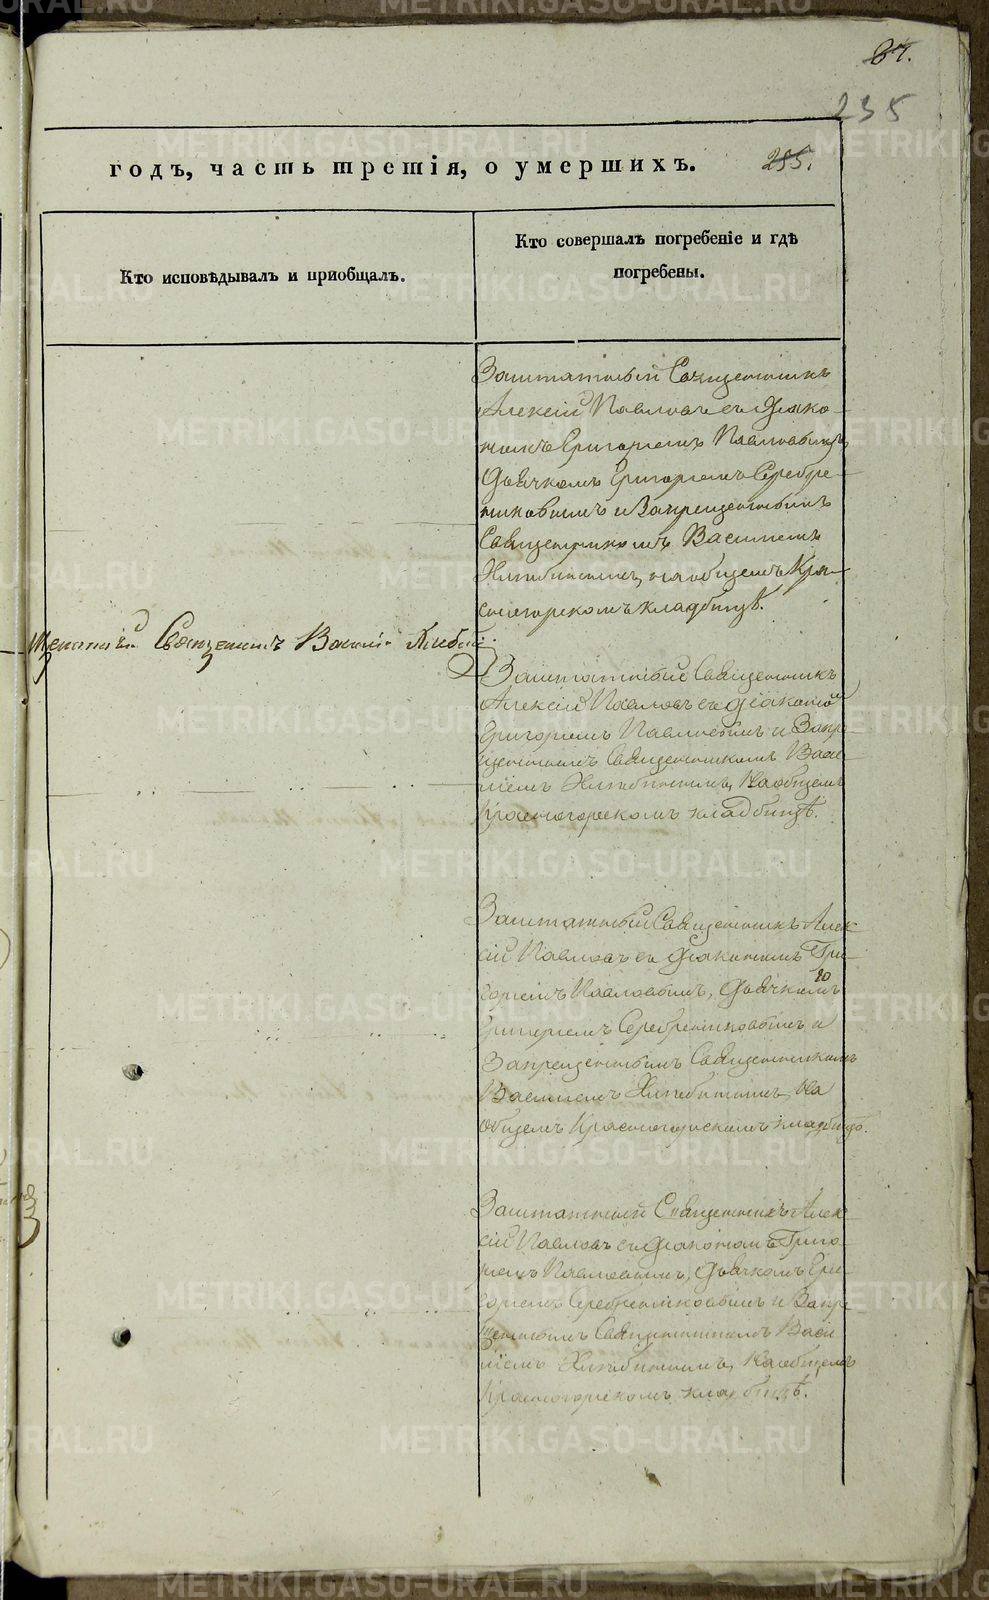 87.
235
255.
годъ, часть третія, о умершихъ.
Кто исповѣдывалъ и пріобщалъ.
Кто совершалъ погребеніе и гдѣ
погребены.
Заштатный Священникъ
Алексій Павловъ съ Діако-
номъ Григоріемъ Павловымъ,
Дьячкомъ Григоріемъ Серебре-
никовымъ и Запрещеннымъ
Священникомъ Василіемъ
на общемъ Кра-
сногорскомъ кладбищѣ.
Священникъ
Заштатный Священникъ
Алексій Павловъ съ Діакономъ
Григоріемъ Павловымъ и Запре-
щеннымъ Священникомъ Васи-
ліемъ на общемъ
Красногорскомъ кладбищѣ.
Заштатный Священникъ Алек
сій Павловъ съ Діакономъ Гри-
горіемъ Павловымъ, Дьячкомъ
Григоріемъ Серебрениковымъ и
Запрещеннымъ Священникомъ
Василіемъ на
общемъ Красногорскомъ кладбищѣ.
Заштатный Священникъ Алек
сій Павловъ съ Діакономъ Григо-
ріемъ Павловымъ, Дьячкомъ Гри-
горіемъ Серебрениковымъ и Запре-
щеннымъ Священникомъ Васи
ліемъ на общемъ
Красногорскомъ кладбищѣ.
METRIKI.GASO-URAL.RU